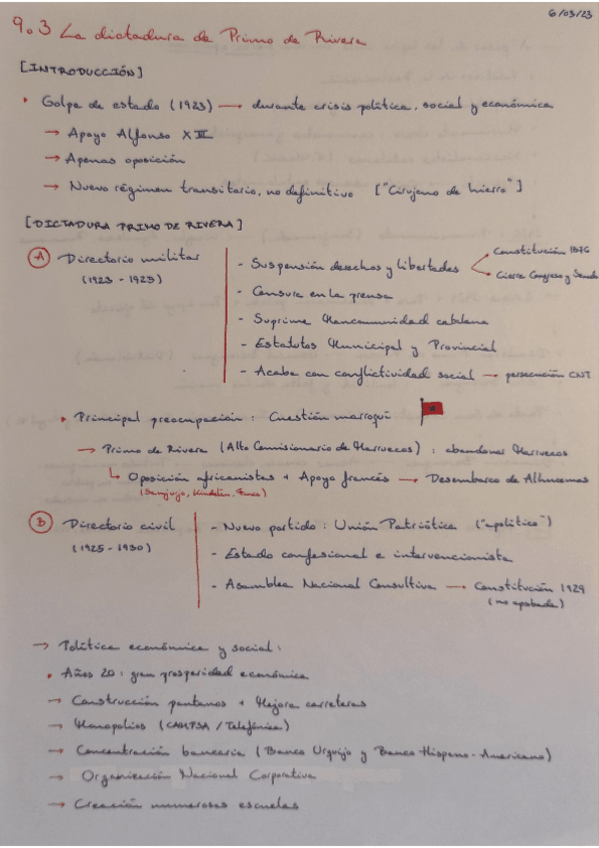 6/03/23
9.3 La dictadura de Primo de Rivera
[INTRODUCCIÓN]
• Golpe de estado (1923) → durante crisis política, social y económica
→ Apoyo Alfonso XIII
→ Apenas oposición
→ Nuevo régimen transitorio, no definitivo ["Cirujano de hierro"]
[DICTADURA PRIMO DE RIVERA]
A Directorio militar
(1923 - 1925)
- Suspensión derechos y libertades
Constitución 1876
Cierre Congreso y Senado
- Censura en la prensa
- Suprime Mancomunidad catalana
- Estatutos Municipal y Provincial
- Acaba con conflictividad social → persecución CNT
• Principal preocupación: Cuestión marroquí
→ Primo de Rivera (Alto Comisionario de Marruecos): abandonar Marruecos
↳ Oposición africanistas + Apoyo francés → Desembarco de Alhucemas
(Sanjurjo, Kindelán, Franco)
B Directorio civil
(1925 - 1930)
- Nuevo partido: Unión Patriótica ("apolítico")
- Estado confesional e intervencionista
- Asamblea Nacional Consultiva → Constitución 1929
(no aprobada)
→ Política económica y social:
• Años 20: gran prosperidad económica
→ Construcción pantanos + Mejora carreteras
→ Monopolios (CAMPSA / Telefónica)
→ Concentración bancaria (Banco Urquijo y Banco Hispano-Americano)
→ Organización Nacional Corporativa
→ Creación numerosas escuelas